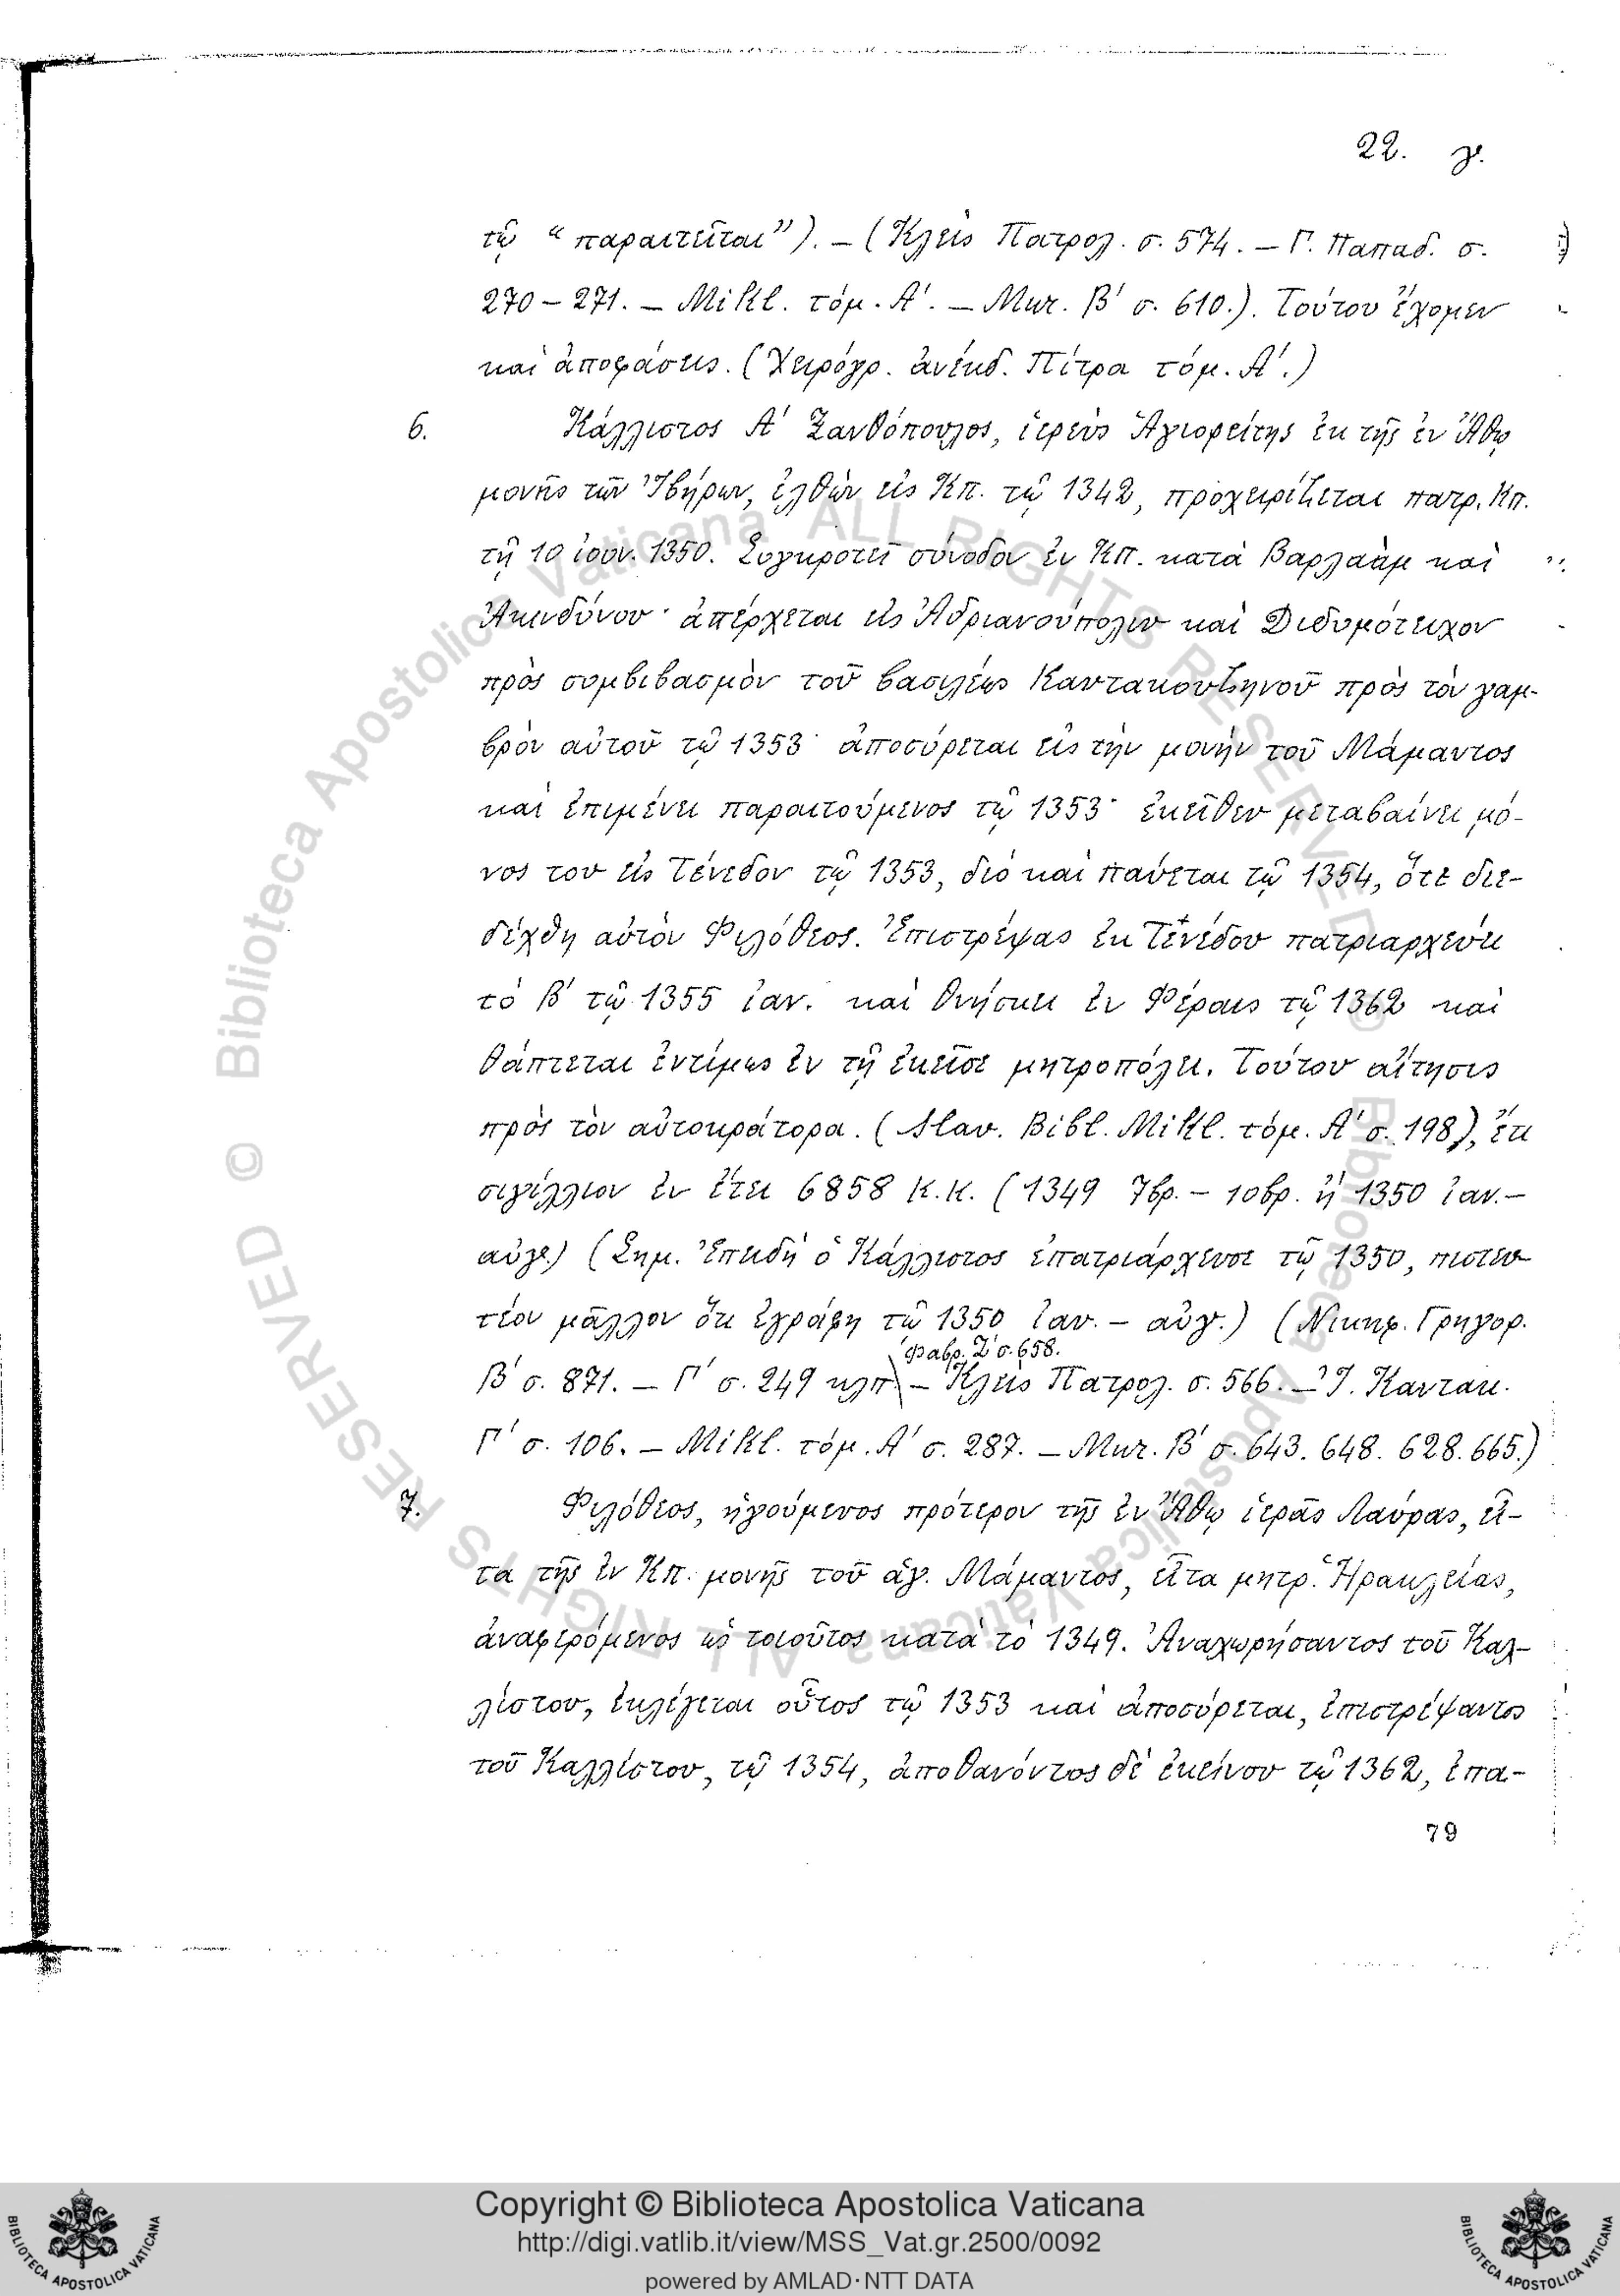 22. γ.
τῷ “παραιτεῖται”). – (Κλεὶς Πατρολ. σ. 574. – Γ. Παπαδ. σ.
270 – 271. – Mikl. τόμ. Α΄. – Mur. Β΄ σ. 610.). Τούτου ἔχομεν
καὶ ἀποφάσεις. (Χειρόγρ. ἀνέκδ. Πίτρα τόμ. Α΄.)
6. Κάλλιστος Α΄ Ξανθόπουλος, ἱερεὺς Ἁγιορείτης ἐκ τῆς ἐν Ἄθῳ
μονῆς τῶν Ἰβήρων, ἐλθὼν εἰς Κπ. τῷ 1342, προχειρίζεται πατρ. Κπ.
τῇ 10 ἰουν. 1350. Συγκροτεῖ σύνοδον ἐν Κπ. κατὰ Βαρλαὰμ καὶ
Ἀκινδύνου· ἀπέρχεται εἰς Ἀδριανούπολιν καὶ Διδυμότειχον
πρὸς συμβιβασμὸν τοῦ βασιλέως Καντακουζηνοῦ πρὸς τὸν γαμ-
βρὸν αὐτοῦ τῷ 1353· ἀποσύρεται εἰς τὴν μονὴν τοῦ Μάμαντος
καὶ ἐπιμένει παραιτούμενος τῷ 1353· ἐκεῖθεν μεταβαίνει μό-
νος του εἰς Τένεδον τῷ 1353, διὸ καὶ παύεται τῷ 1354, ὅτε διε-
δέχθη αὐτὸν Φιλόθεος. Ἐπιστρέψας ἐκ Τενέδου πατριαρχεύει
τὸ Β΄ τῷ 1355 ἰαν. καὶ θνήσκει ἐν Φέραις τῷ 1362 καὶ
θάπτεται ἐντίμως ἐν τῇ ἐκεῖσε μητροπόλει. Τούτου αἴτησις
πρὸς τὸν αὐτοκράτορα. (Slav. Bibl. Mikl. τόμ. Α΄ σ. 198), ἔτι
σιγίλλιον ἐν ἔτει 6858 κ.κ. (1349 7βρ. – 10βρ. ἢ 1350 ἰαν. –
αὐγ.) (Σημ. Ἐπειδὴ ὁ Κάλλιστος ἐπατριάρχευσε τῷ 1350, πιστευ
τέον μᾶλλον ὅτι ἐγράφη τῷ 1350 ἰαν. – αὐγ.) (Νικηφ. Γρηγορ.
Φαβρ. Ζ΄ σ. 658.
Β΄ σ. 871. – Γ΄ σ. 249 κλπ. – Κλεὶς Πατρολ. σ. 566. – Ἰ. Καντακ.
Γ΄ σ. 106. – Mikl. τόμ. Α΄ σ. 287. – Mur. Β΄ σ. 643. 648. 628. 665.)
7. Φιλόθεος, ἡγούμενος πρότερον τῆς ἐν Ἄθῳ ἱερᾶς Λαύρας, εἶ-
τα τῆς ἐν Κπ. μονῆς τοῦ ἁγ. Μάμαντος, εἶτα μητρ. Ἡρακλείας,
ἀναφερόμενος ὡς τοιοῦτος κατὰ τὸ 1349. Ἀναχωρήσαντος τοῦ Καλ-
λίστου, ἐκλέγεται οὗτος τῷ 1353 καὶ ἀποσύρεται, ἐπιστρέψαντος
τοῦ Καλλίστου, τῷ 1354, ἀποθανόντος δὲ ἐκείνου τῷ 1362, ἐπα-
79
© Biblioteca Apostolica Vaticana ALL RIGHTS RESERVED © Biblioteca Apostolica Vaticana ALL RIGHTS RESERVED
Copyright © Biblioteca Apostolica Vaticana
http://digi.vatlib.it/view/MSS_Vat.gr.2500/0092
powered by AMLAD·NTT DATA
BIBLIOTECA APOSTOLICA VATICANA
BIBLIOTECA APOSTOLICA VATICANA